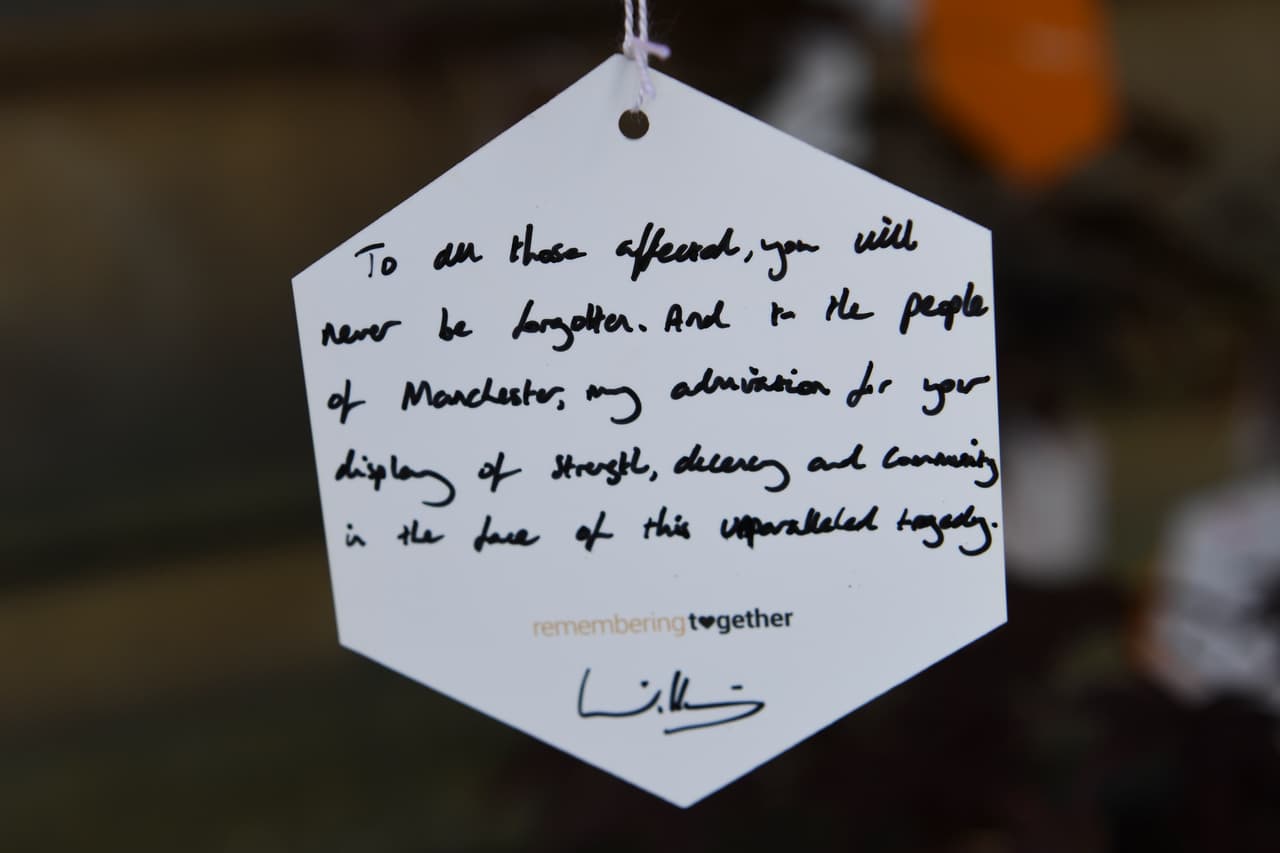 To all those affected, you will
never be forgotten. And to the people
of Manchester, my admiration for your
display of strength, decency and community
in the face of this unparalleled tragedy.
remembering together
William